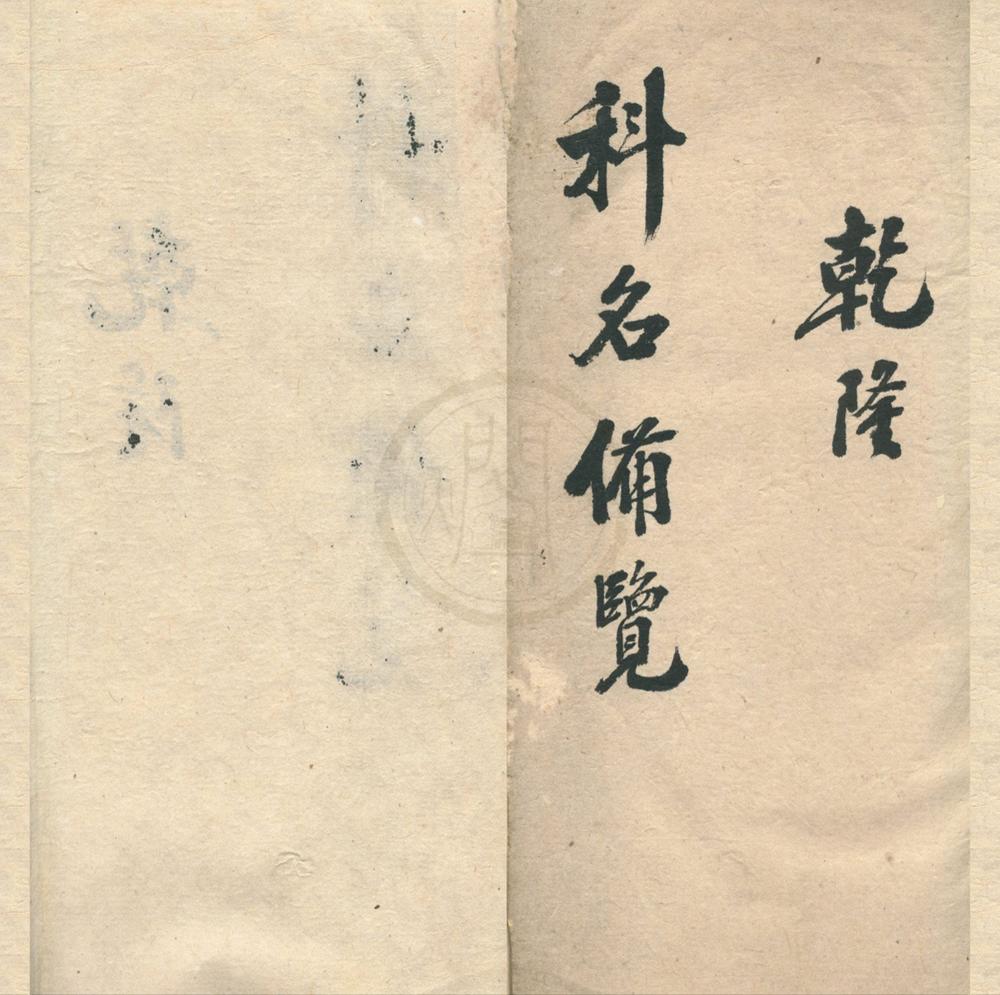 乾隆
科名備覽